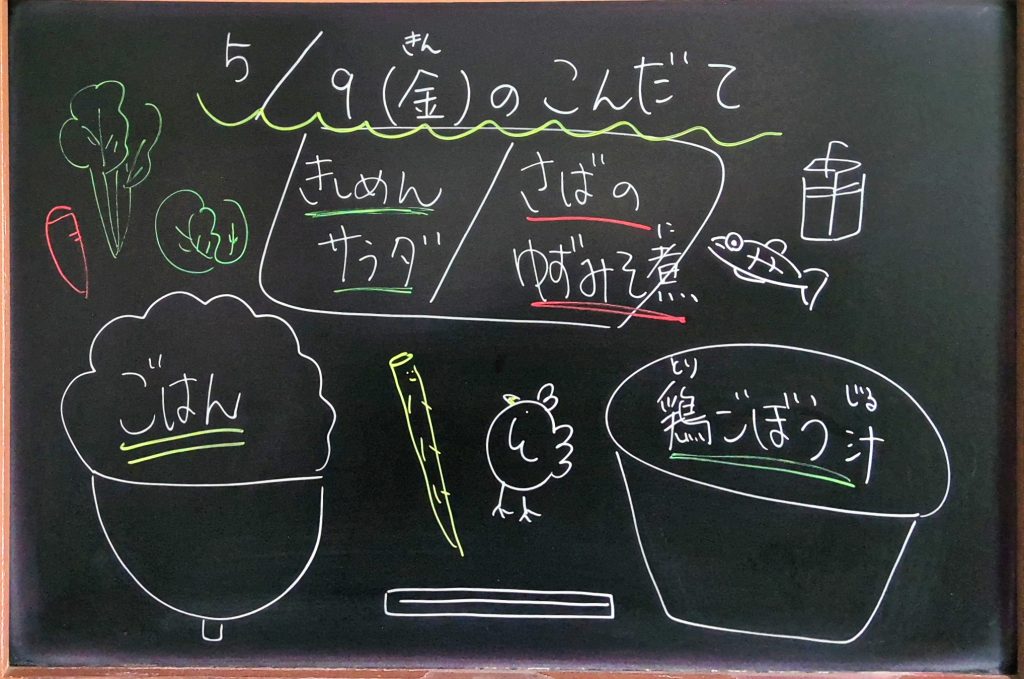 きん
5/9(金)のこんだて
きしめん
サラダ
さばの
に
ゆずみそ煮
ごはん
とり じる
鶏ごぼう汁